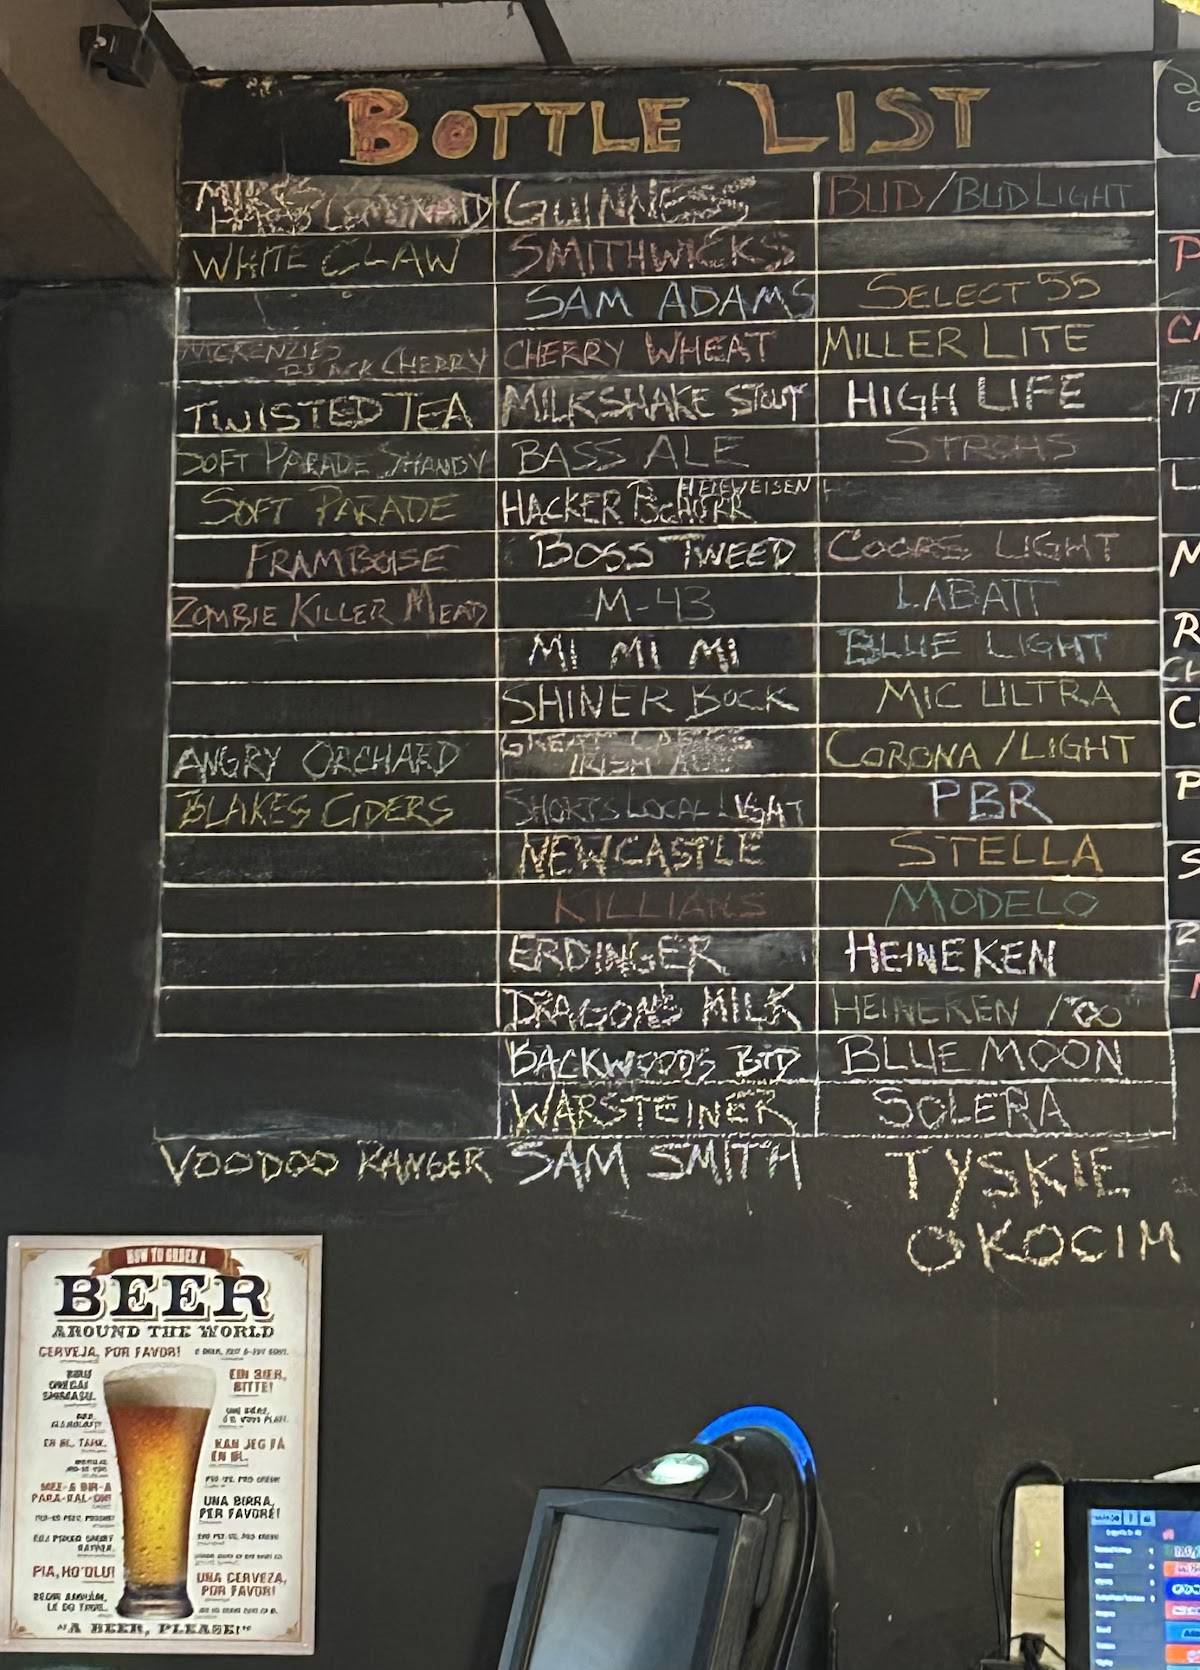 BOTTLE LIST
MIKES
HARD LEMONAID
WHITE CLAW
MCKENZIES
BLACK CHERRY
TWISTED TEA
SOFT PARADE SHANDY
SOFT PARADE
FRAMBOISE
ZOMBIE KILLER MEAD
ANGRY ORCHARD
BLAKES CIDERS
VOODOO RANGER
GUINNESS
SMITHWICKS
SAM ADAMS
CHERRY WHEAT
MILKSHAKE STOUT
BASS ALE
HEFEWEISEN
HACKER PSCHORR
BOSS TWEED
M-43
MI MI MI
SHINER BOCK
GREAT LAKES
IRISH ALE
SHORTS LOCAL LIGHT
NEWCASTLE
KILLIANS
ERDINGER
DRAGONS MILK
BACKWOODS BTD
WARSTEINER
SAM SMITH
BUD/BUD LIGHT
SELECT 55
MILLER LITE
HIGH LIFE
STROHS
COORS LIGHT
LABATT
BLUE LIGHT
MIC ULTRA
CORONA/LIGHT
PBR
STELLA
MODELO
HEINEKEN
HEINEKEN /00
BLUE MOON
SOLERA
TYSKIE
OKOCIM
HOW TO ORDER A
BEER
AROUND THE WORLD
CERVEJA, POR FAVOR!
EIN BIER,
BITTE!
KAN JEG FÅ
EN ØL.
UNA BIRRA,
PER FAVORE!
PIA, HO'OLU!
UNA CERVEZA,
POR FAVOR!
"A BEER, PLEASE!"